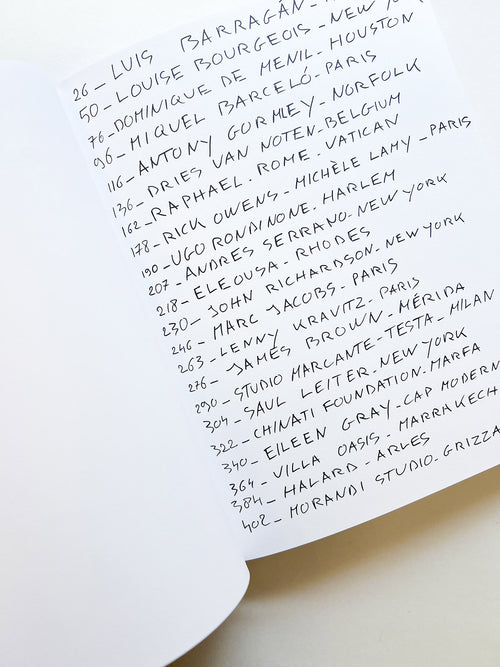 26 - LUIS BARRAGÁN -
50 - LOUISE BOURGEOIS - NEW
76 - DOMINIQUE DE MENIL - HOUSTON
96 - MIQUEL BARCELÓ - PARIS
116 - ANTONY GORMLEY - NORFOLK
136 - DRIES VAN NOTEN - BELGIUM
162 - RAPHAEL. ROME. VATICAN
178 - RICK OWENS - MICHÈLE LAMY - PARIS
190 - UGO RONDINONE. HARLEM
207 - ANDRES SERRANO - NEW YORK
218 - ELEOUSA - RHODES
230 - JOHN RICHARDSON - NEW YORK
246 - MARC JACOBS - PARIS
263 - LENNY KRAVITZ - PARIS
276 - JAMES BROWN - MÉRIDA
290 - STUDIO MARCANTE - TESTA - MILAN
304 - SAUL LEITER. NEW YORK
322 - CHINATI FOUNDATION. MARFA
340 - EILEEN GRAY - CAP MODERN
364 - VILLA OASIS - MARRAKECH
384 - HALARD - ARLES
402 - MORANDI STUDIO - GRIZZA